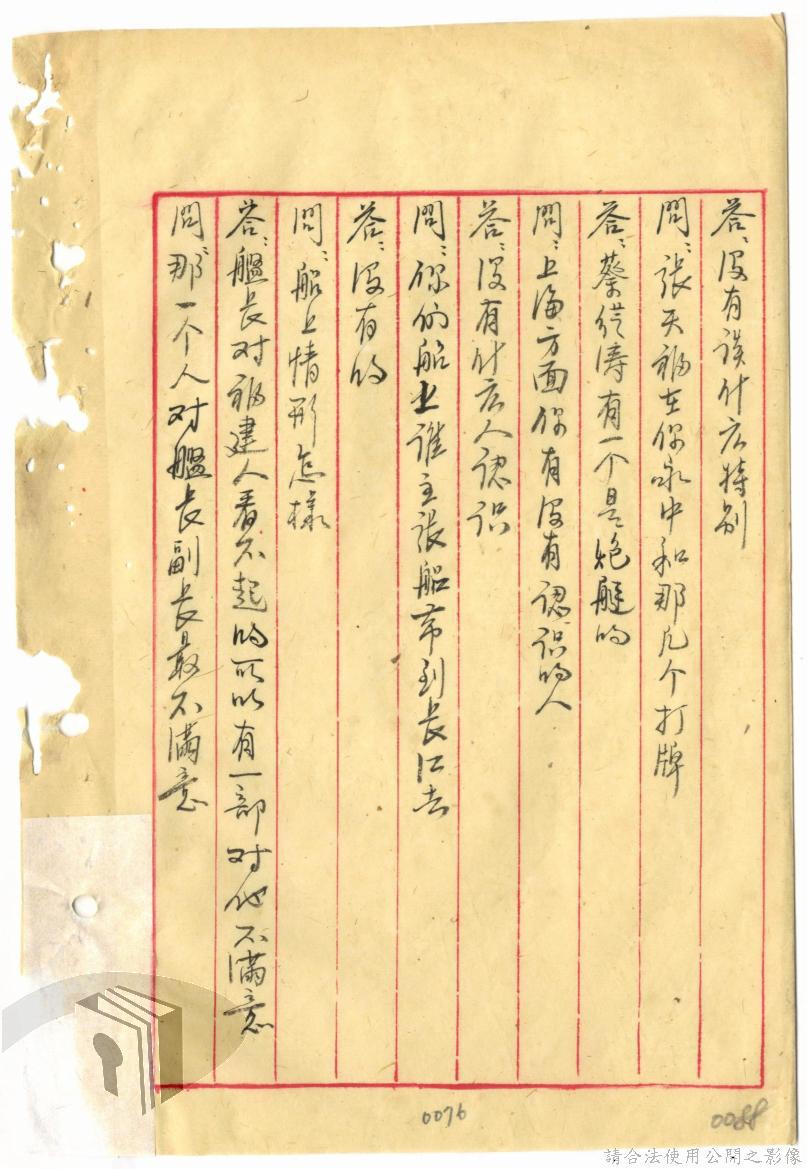 答：没有谈什么特别
問：张天福在你家中和那几个打牌
答：蔡從涛有一个是炮艇的
問：上海方面你有没有認识的人
答：没有什么人認识
問：你的船上谁主张船带到长江去
答：没有的
問：船上情形怎樣
答：艦长对福建人看不起的所以有一部对他不滿意
問：那一个人对艦长副长最不滿意
0076
0088
請合法使用公開之影像